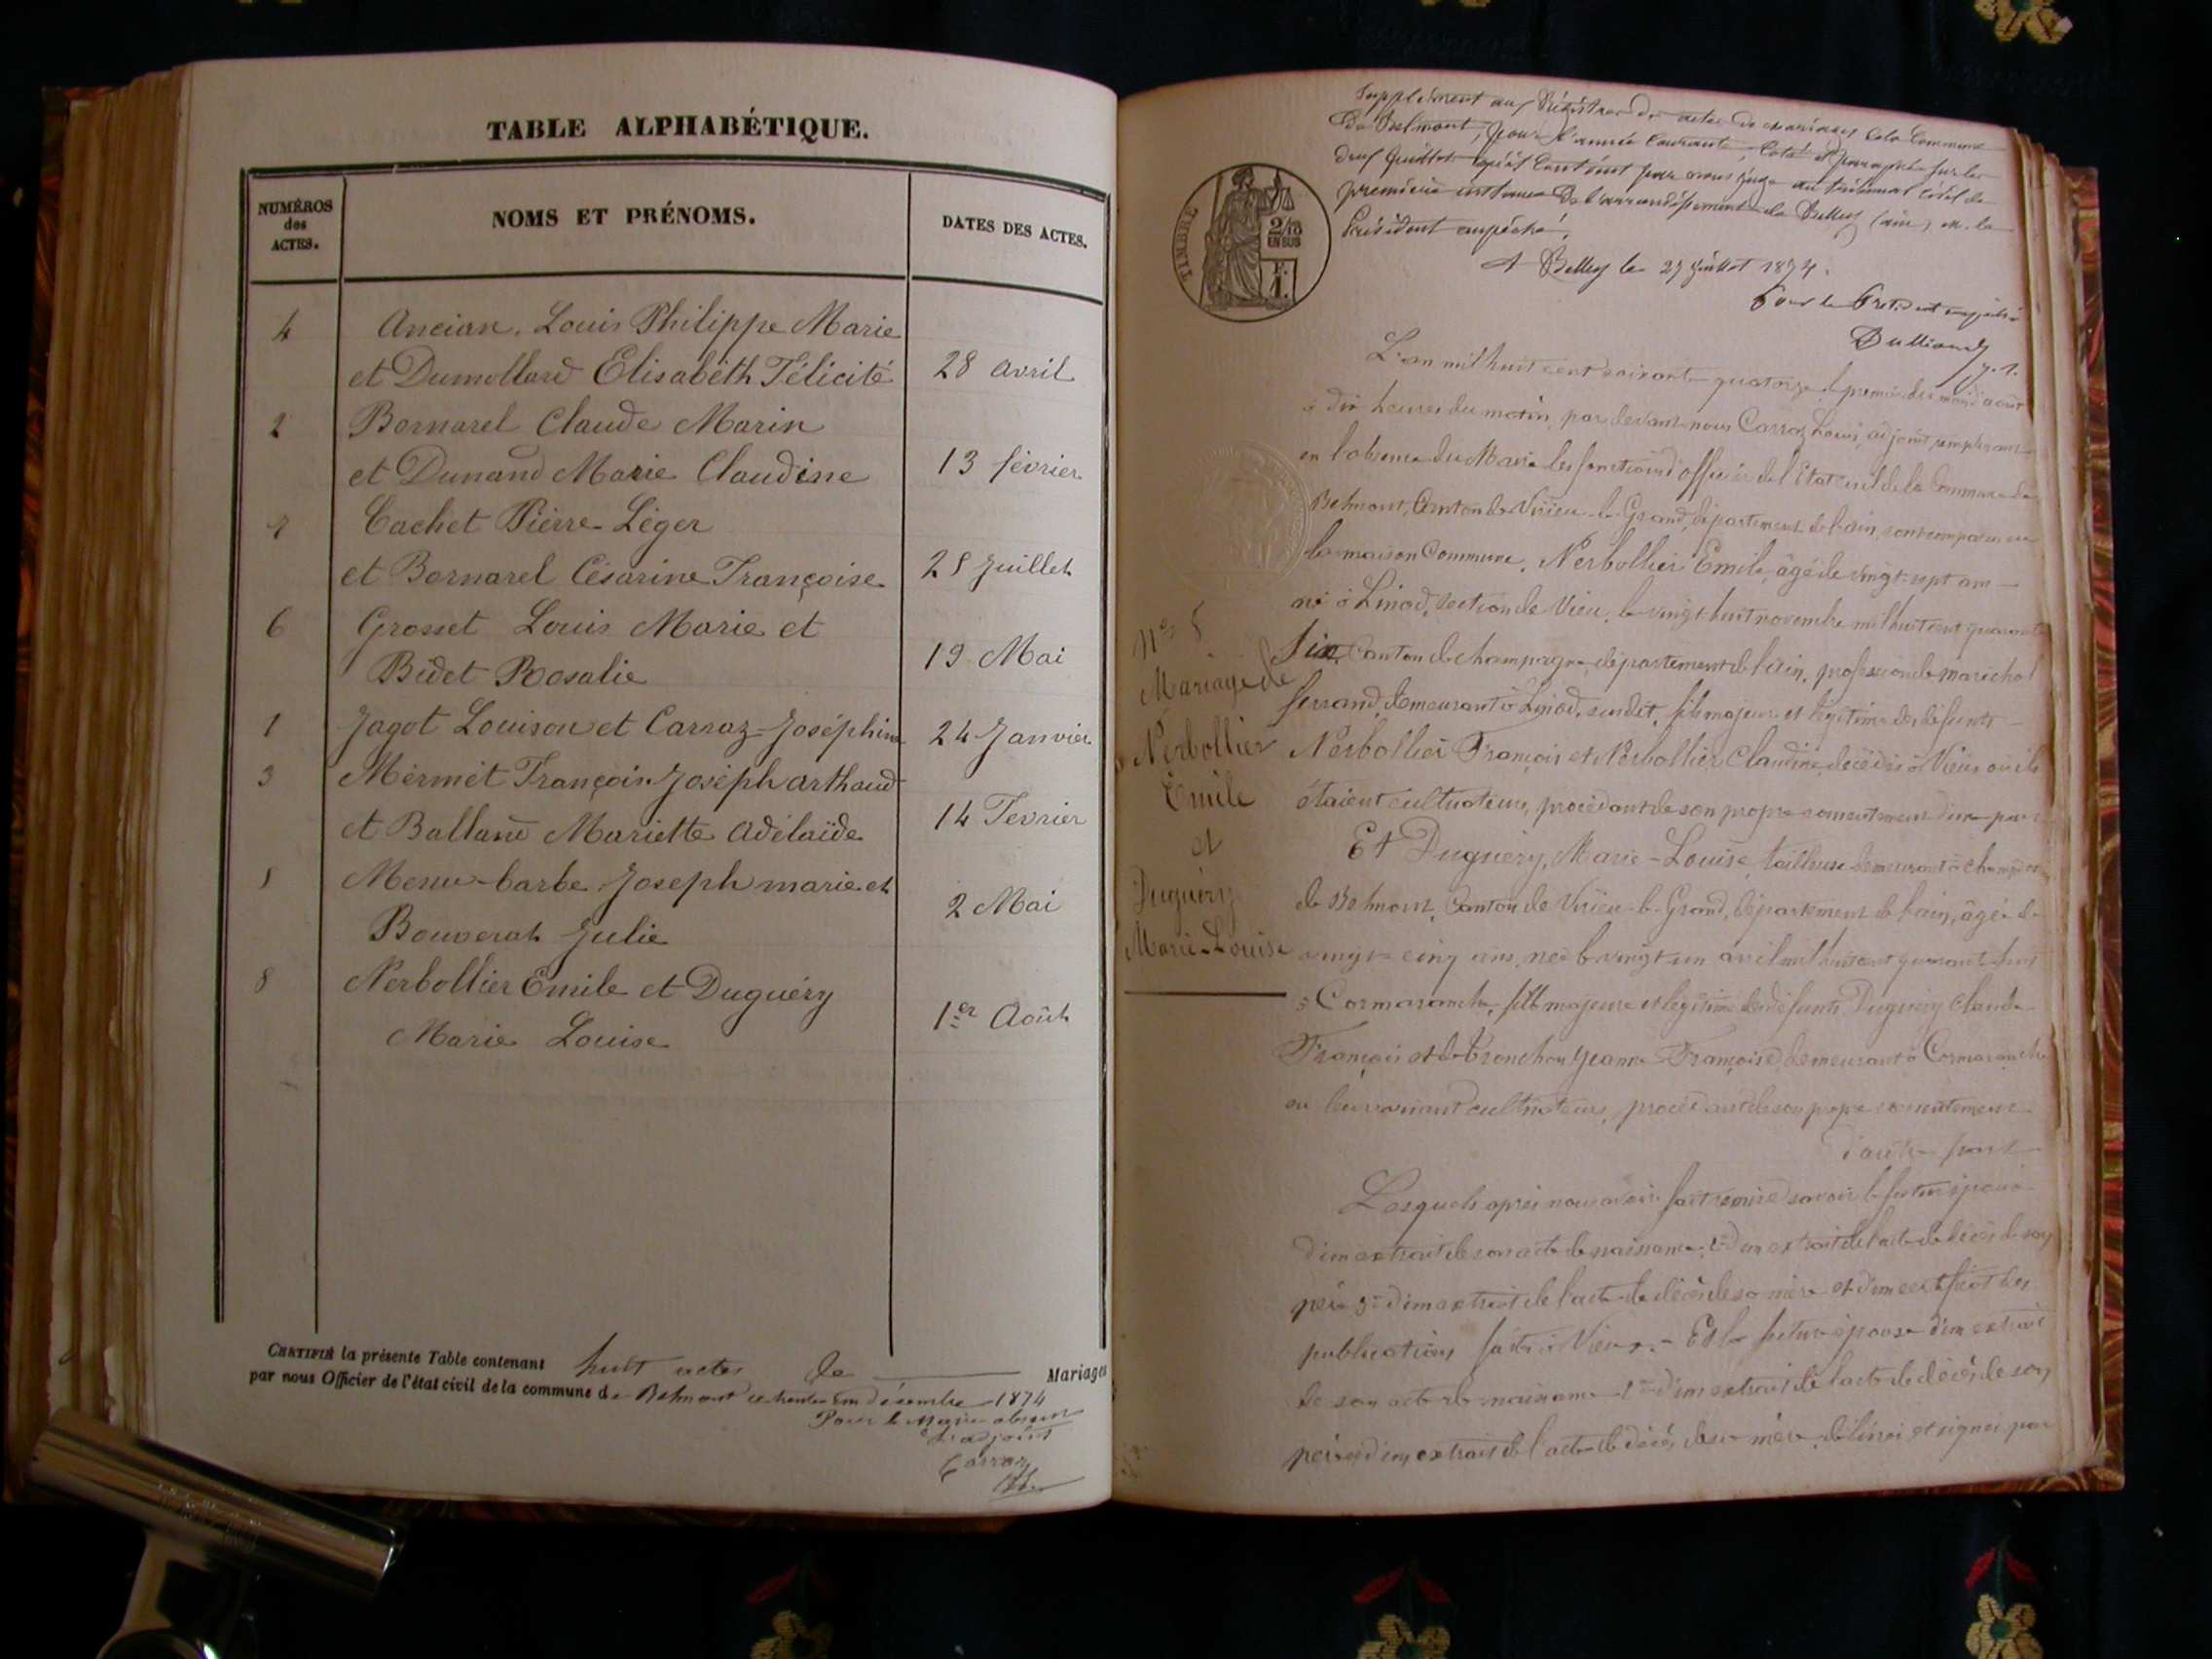 TABLE ALPHABÉTIQUE.
NUMÉROS
des
ACTES.
NOMS ET PRÉNOMS.
DATES DES ACTES.
4 Ancian, Louis Philippe Marie
et Dumollard Elisabéth Félicité 28 avril
2 Bornarel Claude Marin
et Dunand Marie Claudine 13 février
7 Cachet Pierre-Léger
et Bornarel Césarine Françoise 25 Juillet
6 Grosset Louis Marie et
Bidet Rosalie 19 Mai
1 Jagot Louison et Carraz-Joséphine 24 Janvier
3 Mermet François Joséph arthaud
et Balland Mariette Adélaïde 14 Fevrier
5 Menu-barbe Joseph marie et
Bouverat Julie 2 Mai
8 Nerbollier Emile et Duguéry
Marie Louise 1er Août
CERTIFIÉ la présente Table contenant huit actes de Mariages
par nous Officier de l'état civil de la commune de Belmont ce trente un décembre 1874
Pour le Maire absent
L'adjoint
Carraz
Supplément aux Régistres des actes de mariages de la Commune
de Belmont, pour l'année courante, coté et paraphé sur les
deux feuillets qu'il contient par nous juge au tribunal civil de
première instance de l'arrondissement de Belley (ain) M. le
Président empêché.
A Belley le 27 Juillet 1874.
Pour le Président empêché
TIMBRE
2/10
EN SUS
1 F.
L'an mil huit cent soixante quatorze le premier du mois d'août
à dix heures du matin, par devant nous Carraz Louis, adjoint remplissant
en l'absence du Maire les fonctions d'officier de l'Etat civil de la Commune de
Belmont, Canton de Virieu-le-Grand, département de l'ain, sont comparus en
la maison Commune, Nerbollier Emile, âgé de vingt-sept ans
né à Linod, section de Vieu, le vingt huit novembre mil huit cent quarante
Six, Canton de champagne département de l'ain, profession de maréchal
ferrand, demeurant à Linod, susdit, fils majeur et légitime des défunts
Nerbollier François et Nerbollier Claudine, décédés à Vieu où ils
étaient cultivateurs, procédant de son propre consentement d'une part
Et Duguéry, Marie-Louise, tailleuse demeurant à
de Belmont, Canton de Virieu-le-Grand, département de l'ain, âgée de
vingt cinq ans, née le vingt un avril mil huit cent quarante
à Cormaranche, fille majeure et légitime des défunts Duguéry Claude
François et de Tronchon Jeanne Françoise, demeurant à Cormaranche
en leur vivant cultivateurs, procédant de son propre consentement
d'autre part
Lesquels après nous avoir fait remise savoir le futur époux
d'un extrait de son acte de naissance, 2° d'un extrait de l'acte de décès de son
père 3° d'un extrait de l'acte de décès de sa mère et d'un certificat des
publications faites à Vieu. - Et la future épouse d'un extrait
de son acte de naissance d'un extrait de l'acte de décès de son
père d'un extrait de l'acte de décès de sa mère, délivrés et signés par
N° 8
Mariage de
Nerbollier
Émile
et
Duguéry
Marie-Louise